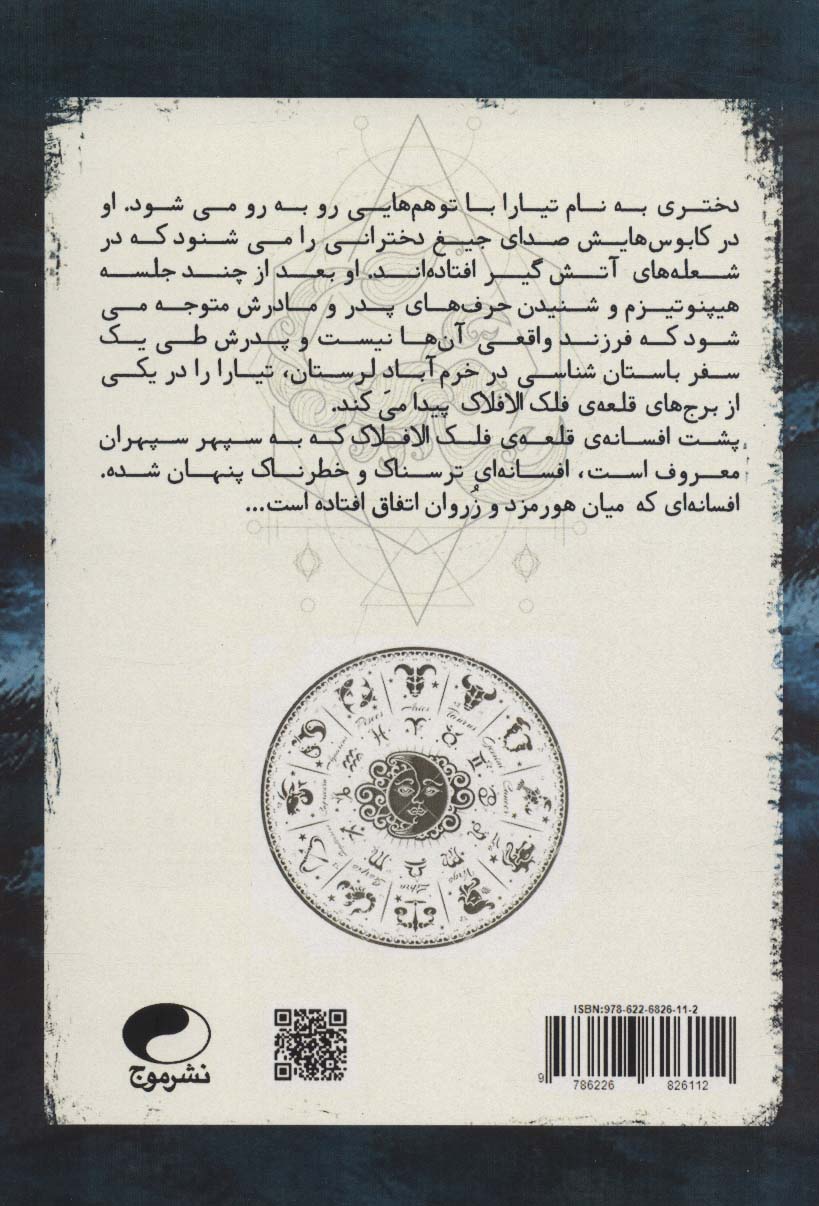 دختری به نام تیارا با توهم‌هایی رو به رو می شود. او
در کابوس‌هایش صدای جیغ دخترانی را می شنود که در
شعله‌های آتش گیر افتاده‌اند. او بعد از چند جلسه
هیپنوتیزم و شنیدن حرف‌های پدر و مادرش متوجه می
شود که فرزند واقعی آن‌ها نیست و پدرش طی یک
سفر باستان شناسی در خرم آبادِ لرستان، تیارا را در یکی
از برج‌های قلعه‌ی فلک الافلاک پیدا می کند.
پشت افسانه‌ی قلعه‌ی فلک الافلاک که به سپهر سپهران
معروف است، افسانه‌ای ترسناک و خطرناک پنهان شده.
افسانه‌ای که میان هورمزد و زُروان اتفاق افتاده است...
Aries
Taurus
Gemini
Cancer
Virgo
Libra
Scorpio
Pisces
نشر موج
ISBN:978-622-6826-11-2
9 786226 826112